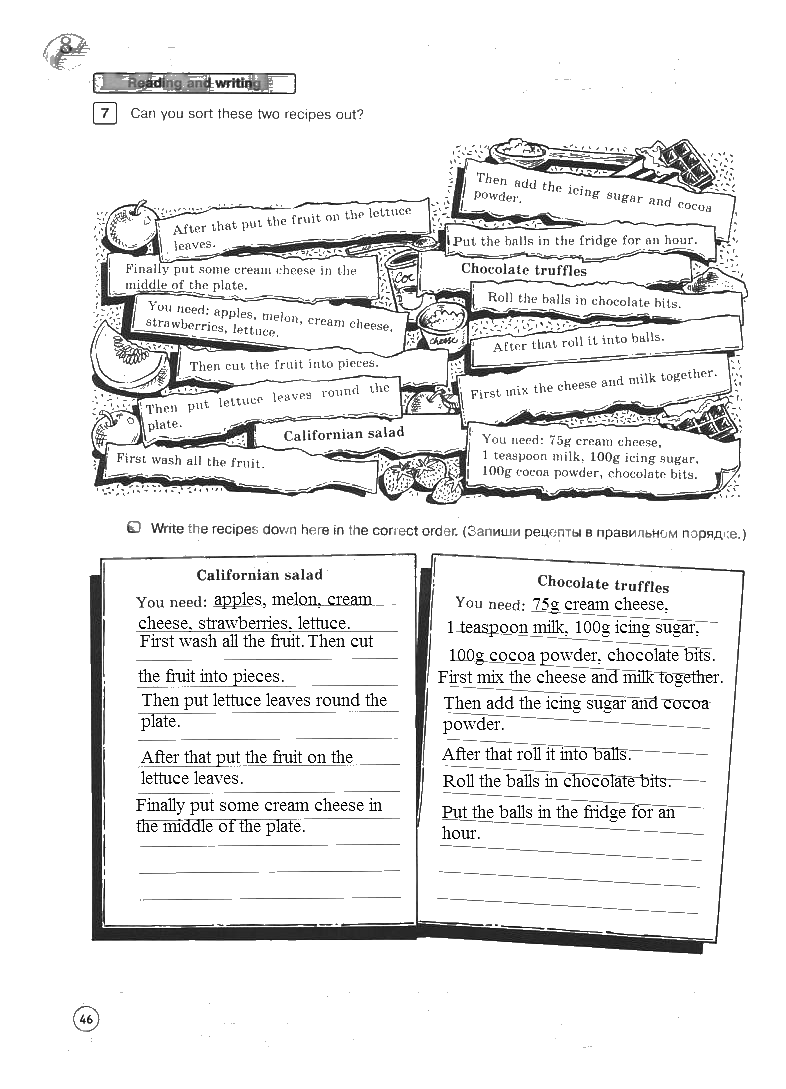 8
Reading and writing
7 Can you sort these two recipes out?
Then add the icing sugar and cocoa
powder.
After that put the fruit on the lettuce
leaves.
Put the balls in the fridge for an hour.
Finally put some cream cheese in the
middle of the plate.
Chocolate truffles
You need: apples, melon, cream cheese,
strawberries, lettuce.
Roll the balls in chocolate bits.
cheese
After that roll it into balls.
Then cut the fruit into pieces.
First mix the cheese and milk together.
Then put lettuce leaves round the
plate.
Californian salad
First wash all the fruit.
You need: 75g cream cheese,
1 teaspoon milk, 100g icing sugar,
100g cocoa powder, chocolate bits.
Write the recipes down here in the correct order. (Запиши рецепты в правильном порядке.)
Californian salad
You need: apples, melon, cream
cheese, strawberries, lettuce.
First wash all the fruit. Then cut
the fruit into pieces.
Then put lettuce leaves round the
plate.
After that put the fruit on the
lettuce leaves.
Finally put some cream cheese in
the middle of the plate.
Chocolate truffles
You need: 75g cream cheese,
1 teaspoon milk, 100g icing sugar,
100g cocoa powder, chocolate bits.
First mix the cheese and milk together.
Then add the icing sugar and cocoa
powder.
After that roll it into balls.
Roll the balls in chocolate bits.
Put the balls in the fridge for an
hour.
46